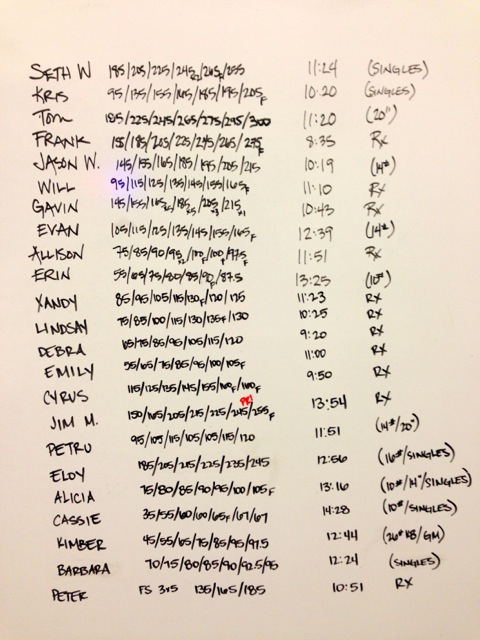 SETH W 185/205/225/245/265F/255 11:24 (SINGLES)
KRIS 95/135/155/165/185/195/205F 10:20 (SINGLES)
TOM 185/225/245/265/275/295/300 11:20 (20")
FRANK 155/185/205/225/245/265/275F 8:35 RX
JASON W. 145/155/165/185/195/205/215 10:19 (14#)
WILL 95/115/125/135/145/155/165F 11:10 RX
GAVIN 145/155/165/185/205/215 10:43 RX
EVAN 105/115/125/135/145/155/165F 12:39 (14#)
ALLISON 75/85/90/95/100/100F/97.5 11:51 RX
ERIN 55/65/75/80/85/90F/87.5 13:25 (10#)
XANDY 85/95/105/115/130F/120/125 11:23 RX
LINDSAY 75/85/100/115/130/135F/130 10:25 RX
DEBRA 65/75/85/95/105/115/120 9:20 RX
EMILY 55/65/75/85/95/100/105F 11:00 RX
CYRUS 115/125/135/145/155/160F/160F 9:50 RX
PR!
JIM M. 150/165/205/215/225/245/255F 13:54 RX
PETRU 95/105/115/105/105/115/120 11:51 (14#/20")
ELOY 185/205/215/225/235/245 12:56 (16#/SINGLES)
ALICIA 75/80/85/90/95/100/105F 13:16 (10#/14"/SINGLES)
CASSIE 35/55/60/60/65F/67/67 14:28 (10#/SINGLES)
KIMBER 45/55/65/75/85/95/97.5 12:44 (26# KB/GM)
BARBARA 70/75/80/85/90/92.5/95 12:24 (SINGLES)
PETER FS 3x5 135/165/185 10:51 RX